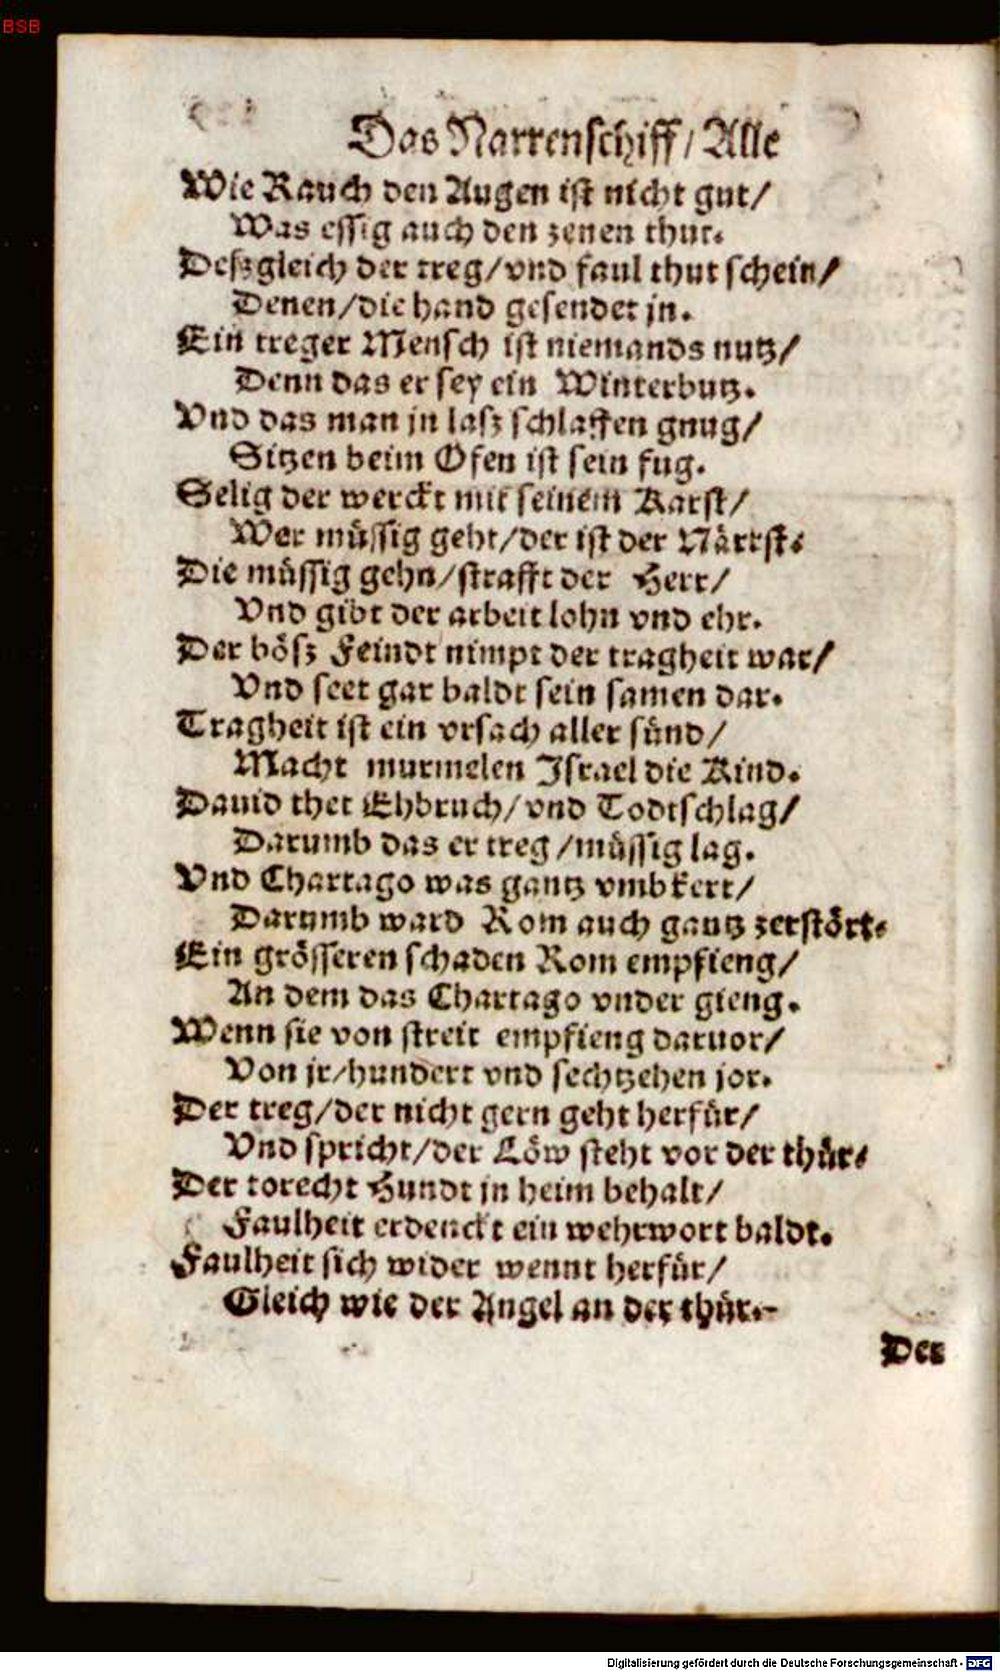 BSB
Das Narrenschiff / Alle
Wie Rauch den Augen ist nicht gut /
Was essig auch den zenen thut.
Deszgleich der treg / vnd faul thut schein /
Denen / die hand gesendet jn.
Ein treger Mensch ist niemands nutz /
Denn das er sey ein Winterbutz.
Vnd das man jn lasz schlaffen gnug /
Sitzen beim Ofen ist sein fug.
Selig der werckt mit seinem Karst /
Wer müssig geht / der ist der Närrst.
Die müssig gehn / strafft der Herr /
Vnd gibt der arbeit lohn vnd ehr.
Der bösz Feindt nimpt der tragheit war /
Vnd seet gar baldt sein samen dar.
Tragheit ist ein vrsach aller sünd /
Macht murmelen Israel die Kind.
Dauid thet Ehbruch / vnd Todtschlag /
Darumb das er treg / müssig lag.
Vnd Chartago was gantz vmbkert /
Darumb ward Rom auch gantz zerstört.
Ein grösseren schaden Rom empfieng /
An dem das Chartago vnder gieng.
Wenn sie von streit empfieng daruor /
Von jr / hundert vnd sechtzehen jor.
Der treg / der nicht gern geht herfür /
Vnd spricht / der Löw steht vor der thür.
Der torecht Hundt jn heim behalt /
Faulheit erdenckt ein wehrwort baldt.
Faulheit sich wider wennt herfür /
Gleich wie der Angel an der thür.
Der
Digitalisierung gefördert durch die Deutsche Forschungsgemeinschaft - DFG